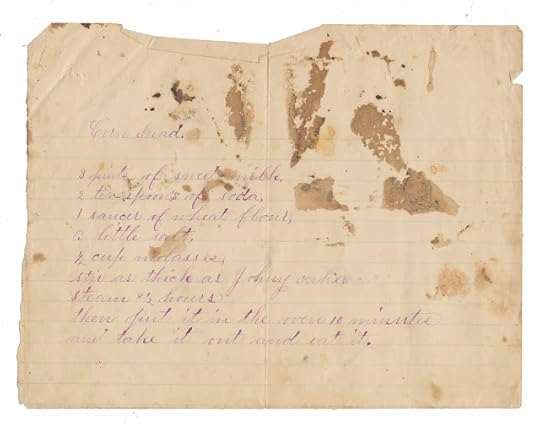 Corn bread.
3 pints of sweet milk,
2 tea spoons of soda,
1 saucer of wheat flour,
a little salt,
½ cup molasses,
stir as thick as Johny cake
steam 4½ hours
then put it in the oven 10 minutes
and take it out and eat it.